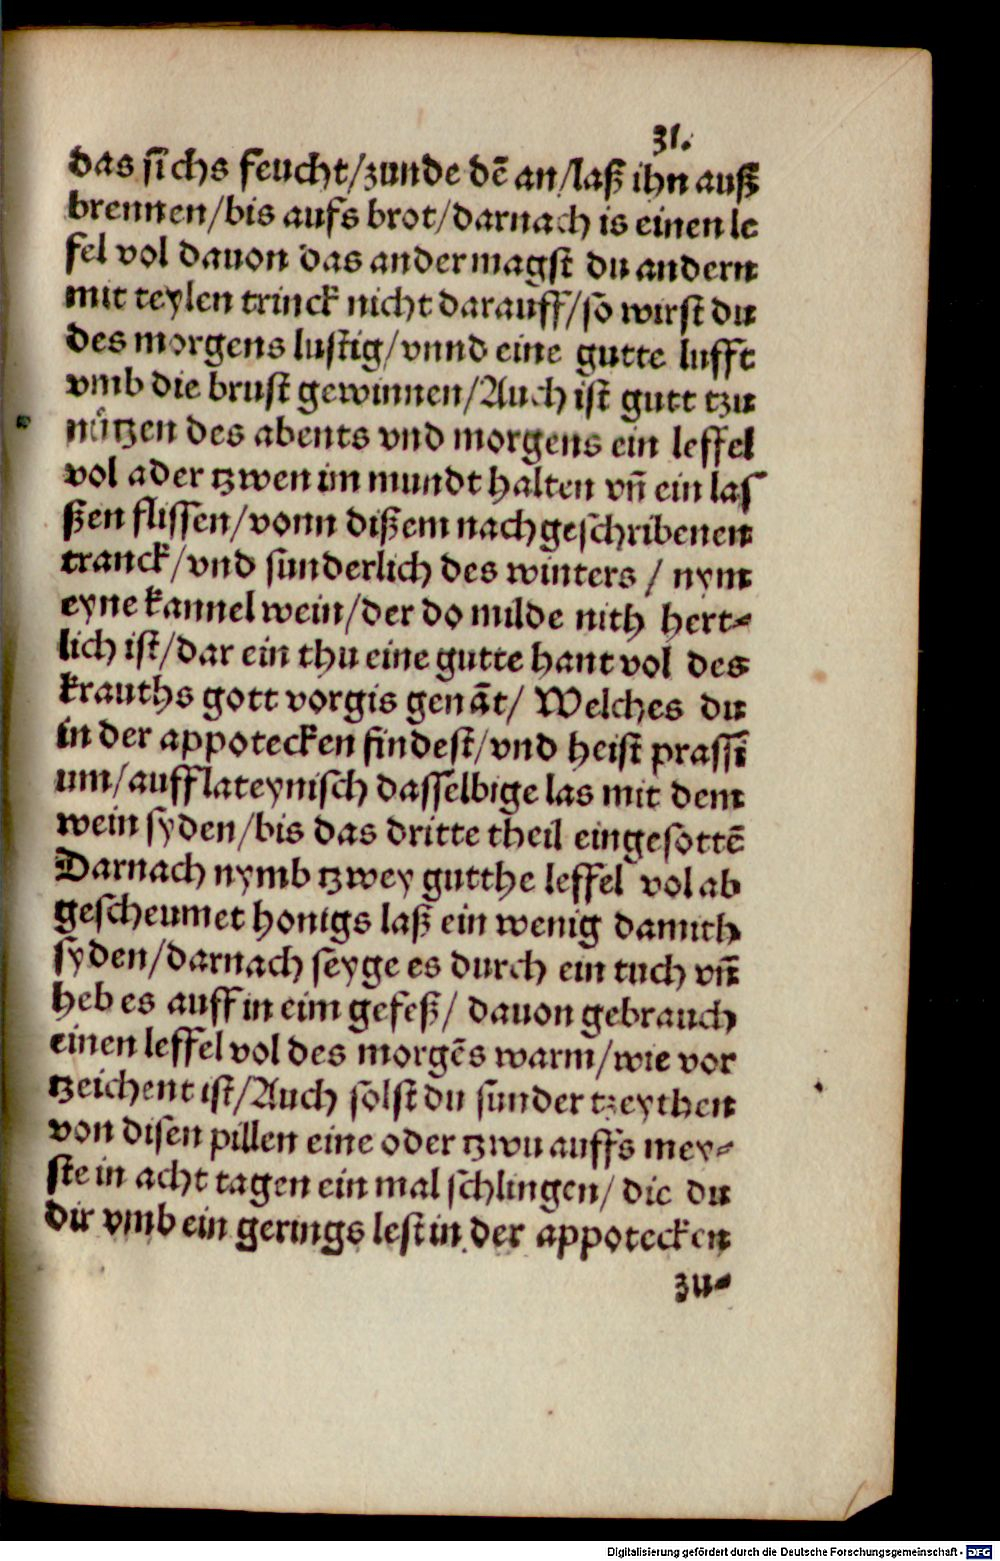 31.
das sichs feucht/zunde dē an/laß ihn auß
brennen/bis aufs brot/darnach is einen le
fel vol dauon das ander magst du andern
mit teylen trinck nicht darauff/so wirst du
des morgens lustig/vnnd eine gutte lufft
vmb die brust gewinnen/Auch ist gutt tzu
nützen des abents vnd morgens ein leffel
vol ader tzwen im mundt halten vn̄ ein las
ßen flissen/vonn dißem nachgeschribenen
tranck/vnd sunderlich des winters / nym
eyne kannel wein/der do milde nith hert-
lich ist/dar ein thu eine gutte hant vol des
krauths gott vorgis genāt/ Welches du
in der appotecken findest/vnd heist prassi
um/auff lateynisch dasselbige las mit dem
wein syden/bis das dritte theil eingesottē
Darnach nymb tzwey gutthe leffel vol ab
gescheumet honigs laß ein wenig damith
syden/darnach seyge es durch ein tuch vn̄
heb es auff in eim gefeß/ dauon gebrauch
einen leffel vol des morgēs warm/wie vor
tzeichent ist/Auch solst du sunder tzeythen
von disen pillen eine oder tzwu auffs mey-
ste in acht tagen ein mal schlingen/ die du
dir vmb ein gerings lest in der appotecken
zu-
Digitalisierung gefördert durch die Deutsche Forschungsgemeinschaft - DFG